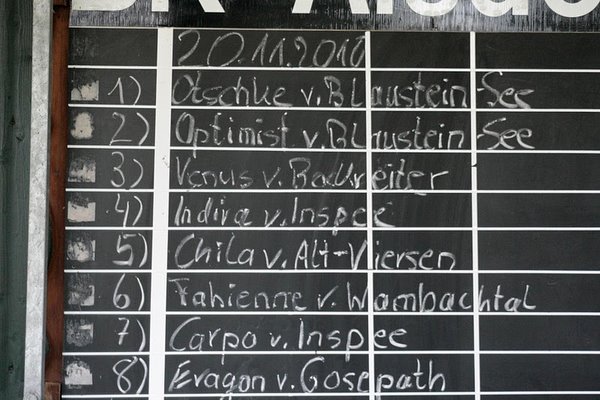 BK Alsdo
20.11.2010
1) Otschke v. Blaustein-See
2) Optimist v. Blaustein-See
3) Venus v. Badkreiter
4) Indira v. Inspee
5) Chila v. Alt-Viersen
6) Fabienne v. Wambachtal
7) Carpo v. Inspee
8) Eragon v. Gosepath